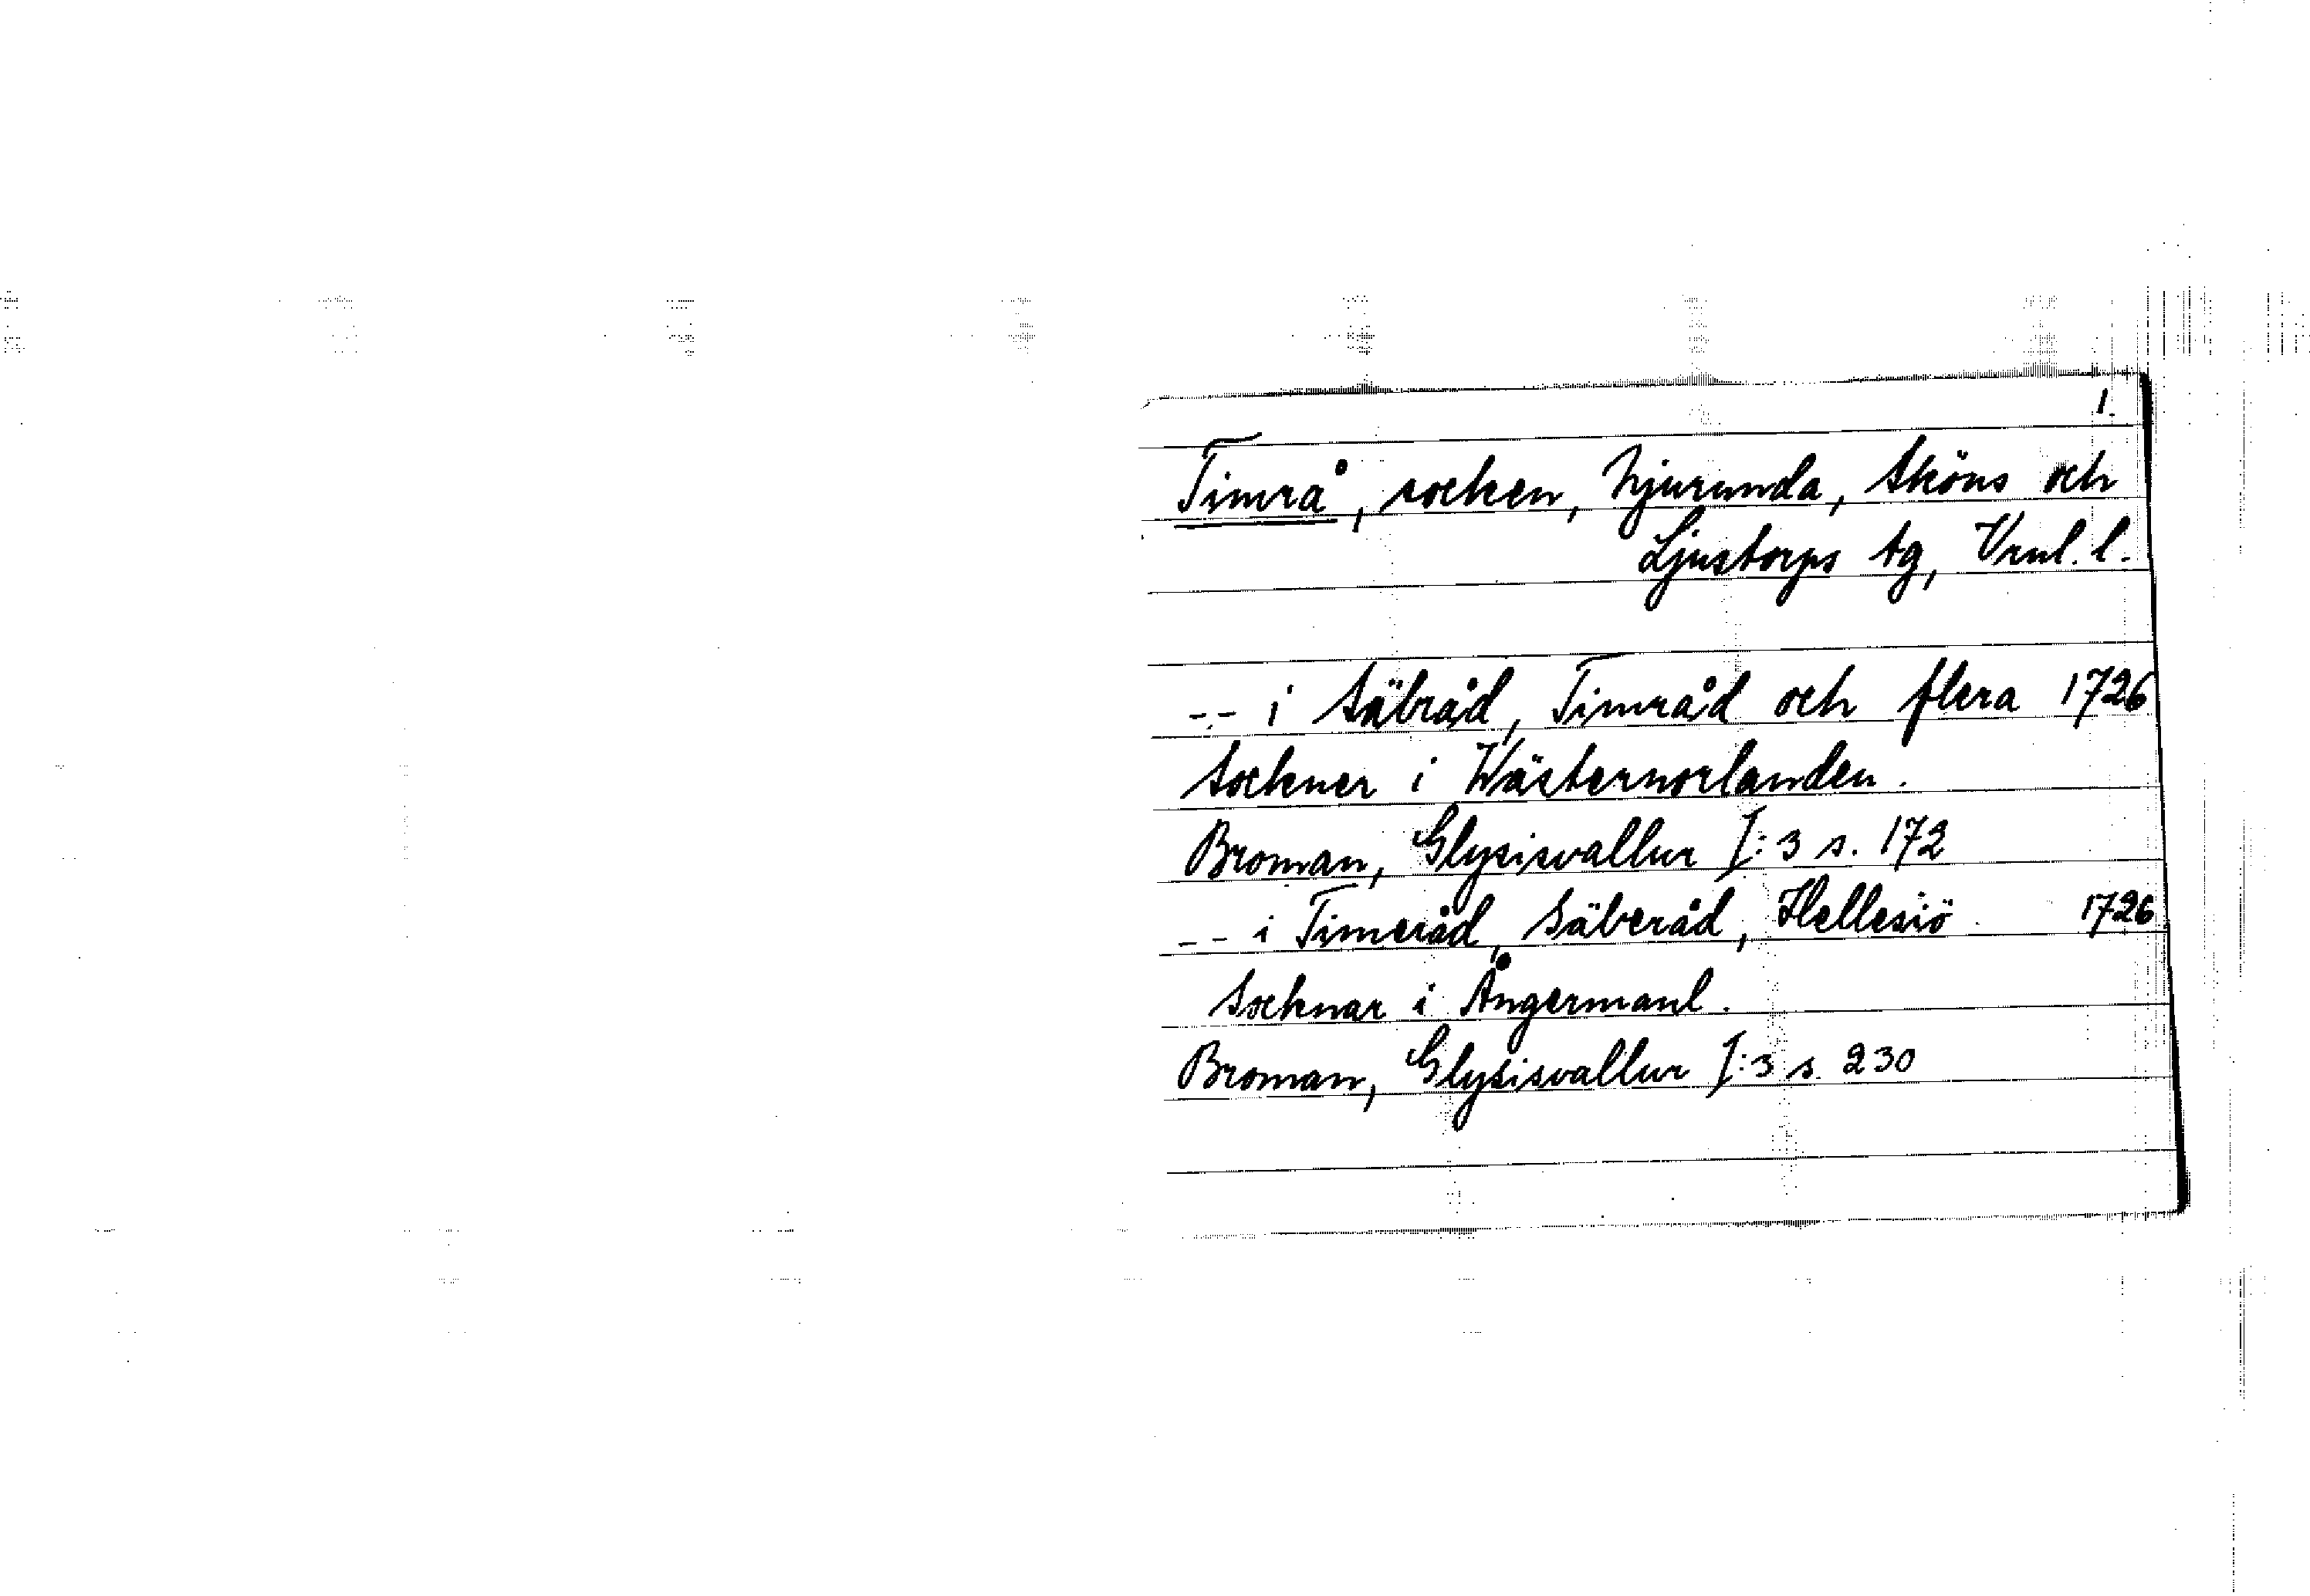 1.
Timrå, socken, Njurunda, Sköns och
Ljustorps tg, Vrnl. l.
-- i Säbråd, Timråd och flera 1726
Sockner i Wästernorlanden.
Broman, Glysisvallur I:3 s. 172
-- i Timeråd, Säberåd, Hellesiö 1726
Socknar i Ångermanl.
Broman, Glysisvallur I:3 s. 230